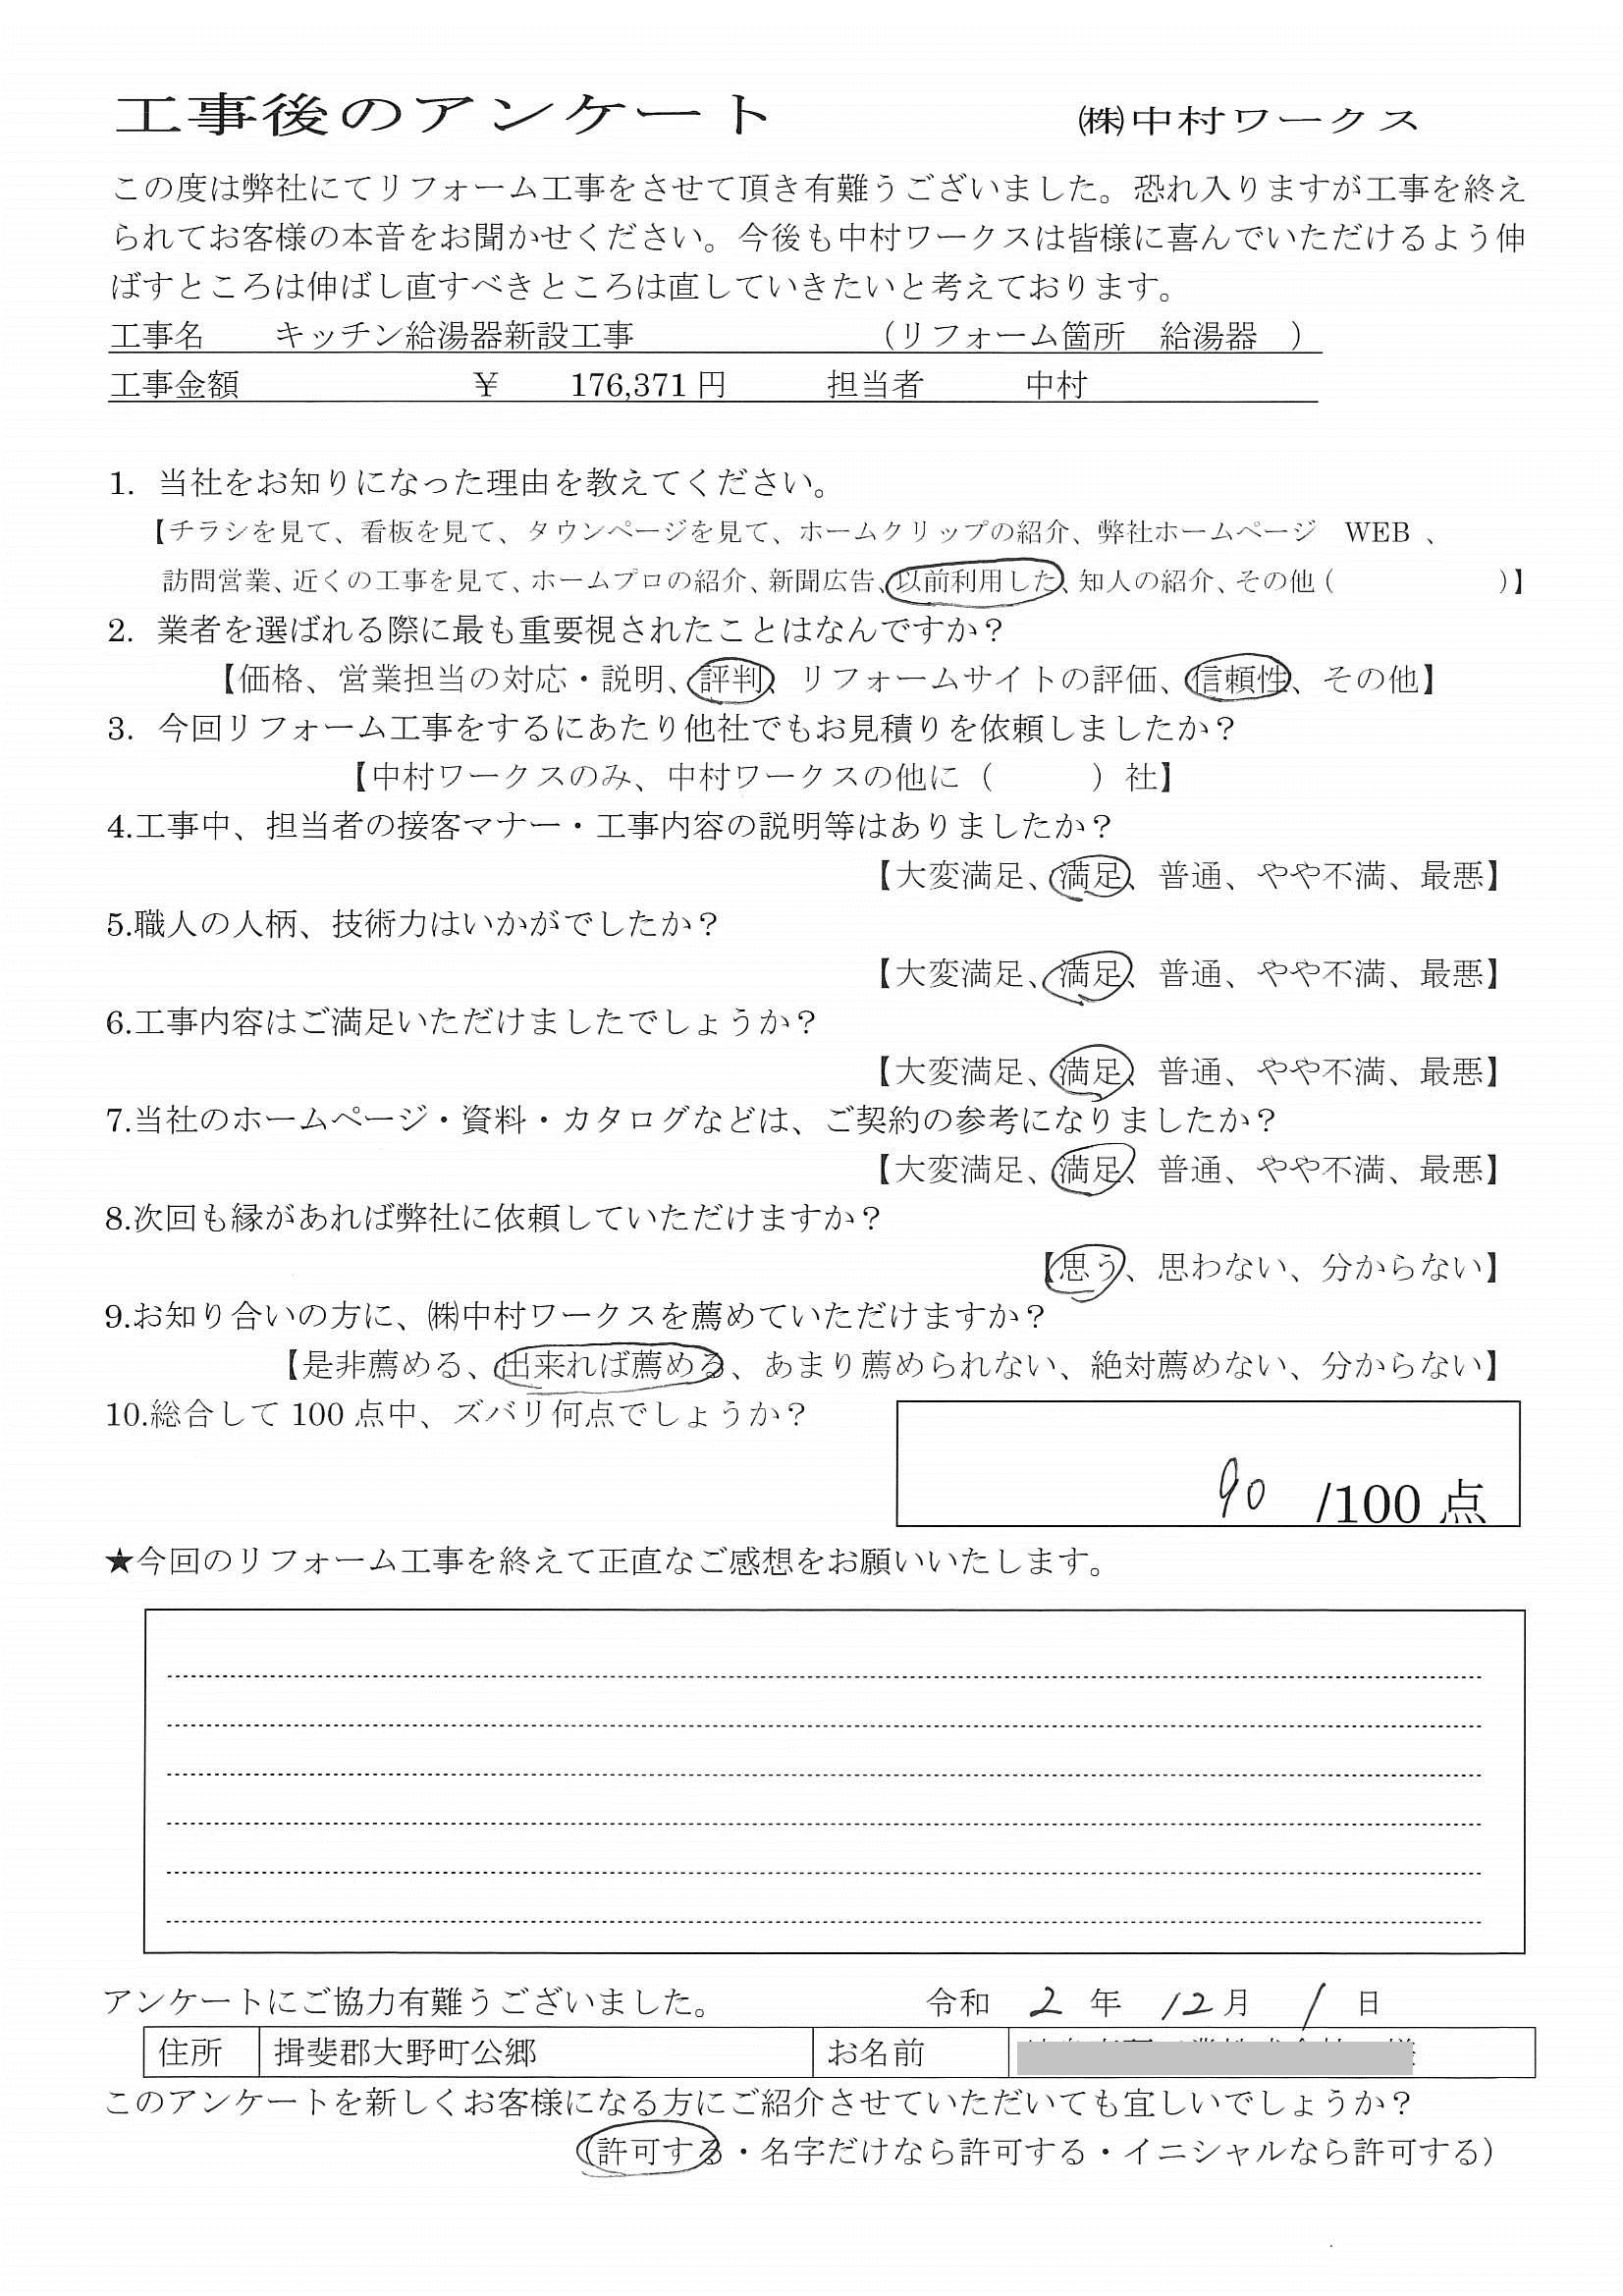 工事後のアンケート ㈱中村ワークス
この度は弊社にてリフォーム工事をさせて頂き有難うございました。恐れ入りますが工事を終え
られてお客様の本音をお聞かせください。今後も中村ワークスは皆様に喜んでいただけるよう伸
ばすところは伸ばし直すべきところは直していきたいと考えております。
工事名 キッチン給湯器新設工事 （リフォーム箇所 給湯器 ）
工事金額 ￥ 176,371 円 担当者 中村
1. 当社をお知りになった理由を教えてください。
【チラシを見て、看板を見て、タウンページを見て、ホームクリップの紹介、弊社ホームページ WEB 、
訪問営業、近くの工事を見て、ホームプロの紹介、新聞広告、以前利用した、知人の紹介、その他（ ）】
2. 業者を選ばれる際に最も重要視されたことはなんですか？
【価格、営業担当の対応・説明、評判、リフォームサイトの評価、信頼性、その他】
3. 今回リフォーム工事をするにあたり他社でもお見積りを依頼しましたか？
【中村ワークスのみ、中村ワークスの他に（ ）社】
4.工事中、担当者の接客マナー・工事内容の説明等はありましたか？
【大変満足、満足、普通、やや不満、最悪】
5.職人の人柄、技術力はいかがでしたか？
【大変満足、満足、普通、やや不満、最悪】
6.工事内容はご満足いただけましたでしょうか？
【大変満足、満足、普通、やや不満、最悪】
7.当社のホームページ・資料・カタログなどは、ご契約の参考になりましたか？
【大変満足、満足、普通、やや不満、最悪】
8.次回も縁があれば弊社に依頼していただけますか？
【思う、思わない、分からない】
9.お知り合いの方に、㈱中村ワークスを薦めていただけますか？
【是非薦める、出来れば薦める、あまり薦められない、絶対薦めない、分からない】
10.総合して 100 点中、ズバリ何点でしょうか？
90 /100 点
★今回のリフォーム工事を終えて正直なご感想をお願いいたします。
アンケートにご協力有難うございました。 令和 2 年 12 月 1 日
住所 揖斐郡大野町公郷 お名前
このアンケートを新しくお客様になる方にご紹介させていただいても宜しいでしょうか？
（許可する・名字だけなら許可する・イニシャルなら許可する）